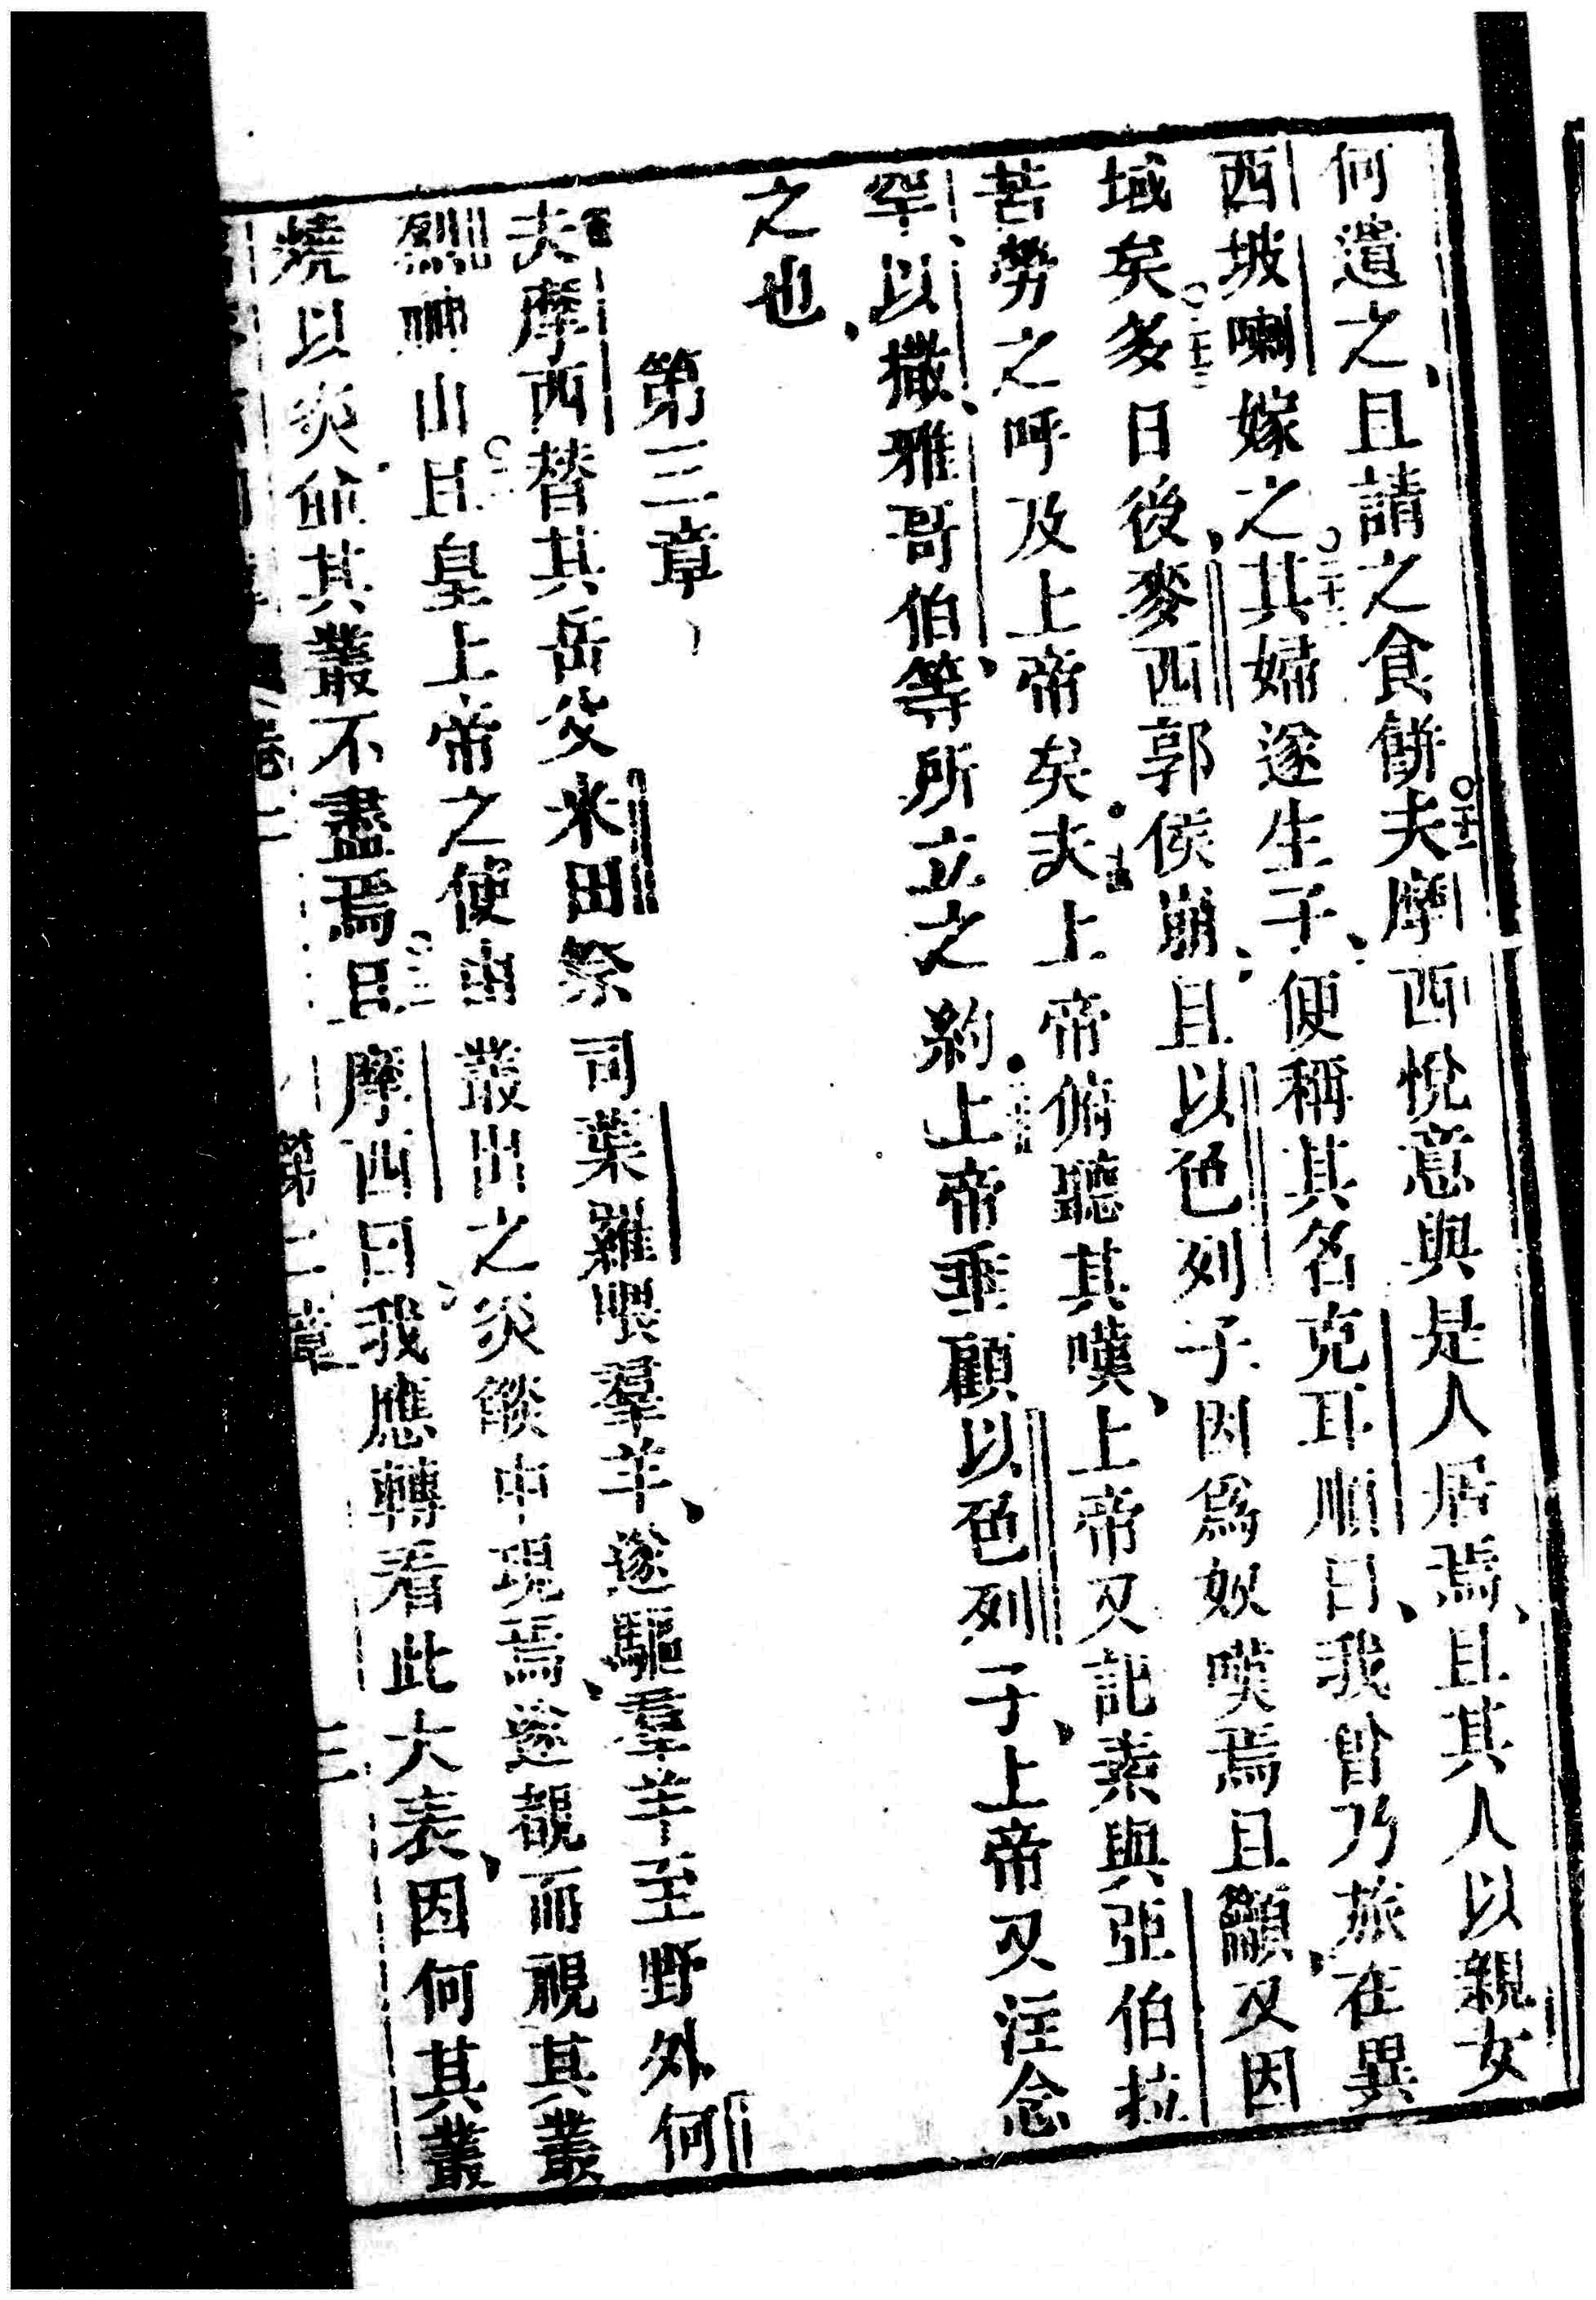 何遺之、且請之食餅○二十一夫摩西悅意與是人居焉、且其人以親女
西坡喇嫁之○二十二其婦遂生子、便稱其名克耳順曰、我曾乃旅在異
域矣○二十三多日後、麥西郭侯崩、且以色列子因爲奴嘆焉且籲、又因
苦勞之呼及上帝矣。夫上帝俯聽其嘆、上帝又記素與亞伯拉
罕、以撒、雅哥伯、等所立之約。上帝垂顧以色列子、上帝又注念
之也、
第三章
夫摩西替其岳父米田祭司葉羅喂羣羊、遂驅羣羊至野外何
烈神山且皇上帝之使由叢出之炎燄中現焉、遂覩而視其叢
燒以炎、並其叢不盡焉○三且摩西曰、我應轉看此大表、因何其叢
卷二 第二章 三